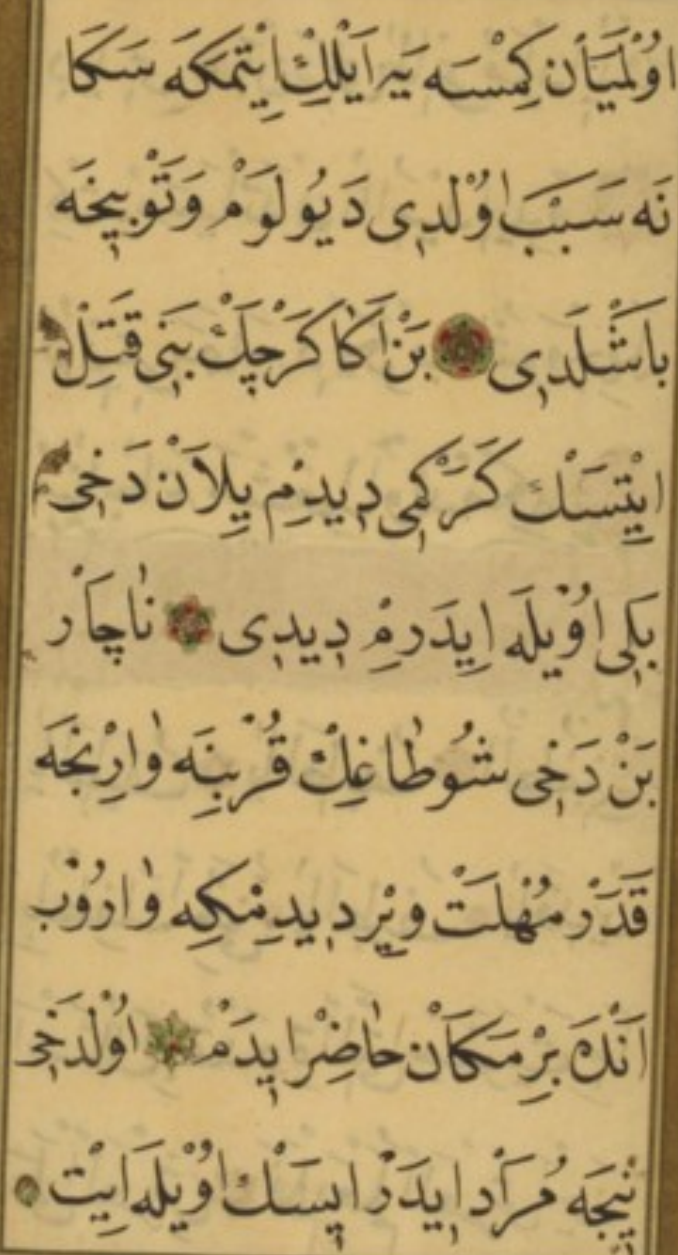 اوُلْمَيَاَنْ كِمْسَه يَه اَيْلِكْ اِيتِمَكَه سَكَا
نَه سَبَبْ اوُلْدِى دَيُو لَوْمْ وَ تَوْبِيخَه
بَاشْلَدِى بَنْ اَكَا كَرْچَكْ بَنِى قَتِلْ
اِيْتِسَكْ كَرَكْمِى دِيدِمْ يِلاَنْ دَخِى
بَلِى اوُيْلَه اِيدَرِمْ دِيدِى نَاچَارْ
بَنْ دَخِى شُوطَاغِكْ قُرْبِنَه وَارِنْجَه
قَدَرْ مُهْلَتْ وِيرْ دِيدِمْكِه وَارُوبْ
اَنْدَه بِرْ مَكَانْ حَاضِرْ اِيدَمْ اوُلْدَخِى
نِيجَه مُرَادْ اِيدَرْ اِيسَكْ اوُيْلَه اِيتْ